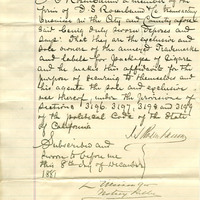 a member of the
firm of
business in the City and County aforesaid
and being duly sworn deposes and
says: That they are the exclusive and
sole owners of the annexed Trademarks
and labels for packages of cigars
and he makes this affidavit for the
purpose of securing to themselves and
his agents the sole and exclusive
use thereof, under the provisions of
Sections 3196, 3197, 3198 and 3199
of the political Code of the State
of California
Subscribed and
sworn to before me
this 8th day of December
1881
Notary Public